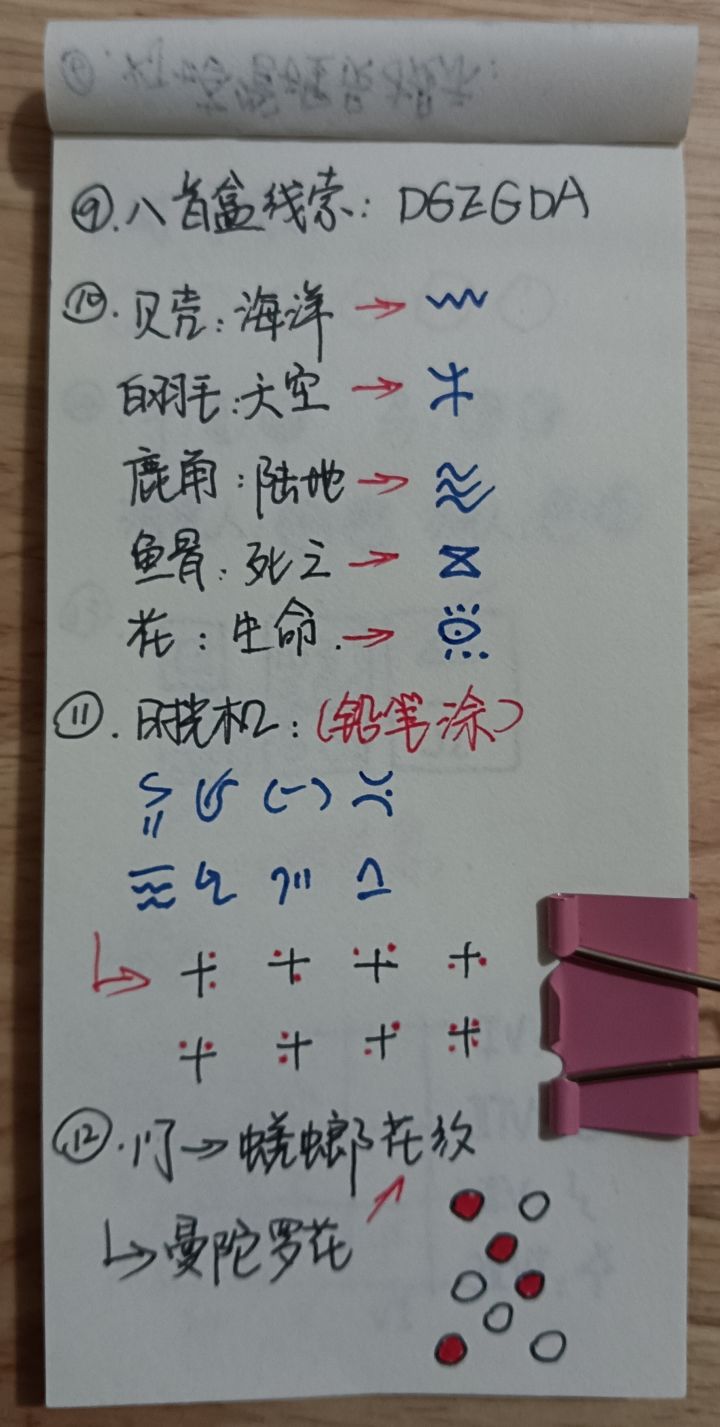 ⑨.八音盒线索：DGEGDA
⑩.贝壳：海洋→
白羽毛：天空→
鹿角：陆地→
鱼骨：死亡→
花：生命.→
⑪.时光机：（铅笔涂）
⑫.门→蟑螂花纹
↳曼陀罗花